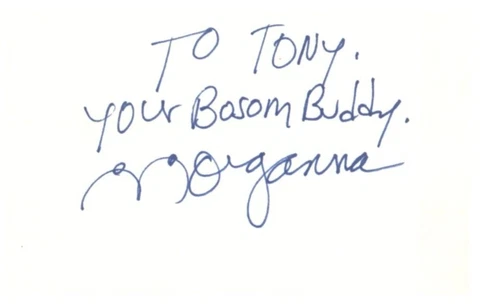 To Tony.
your Bosom Buddy.
Morganna